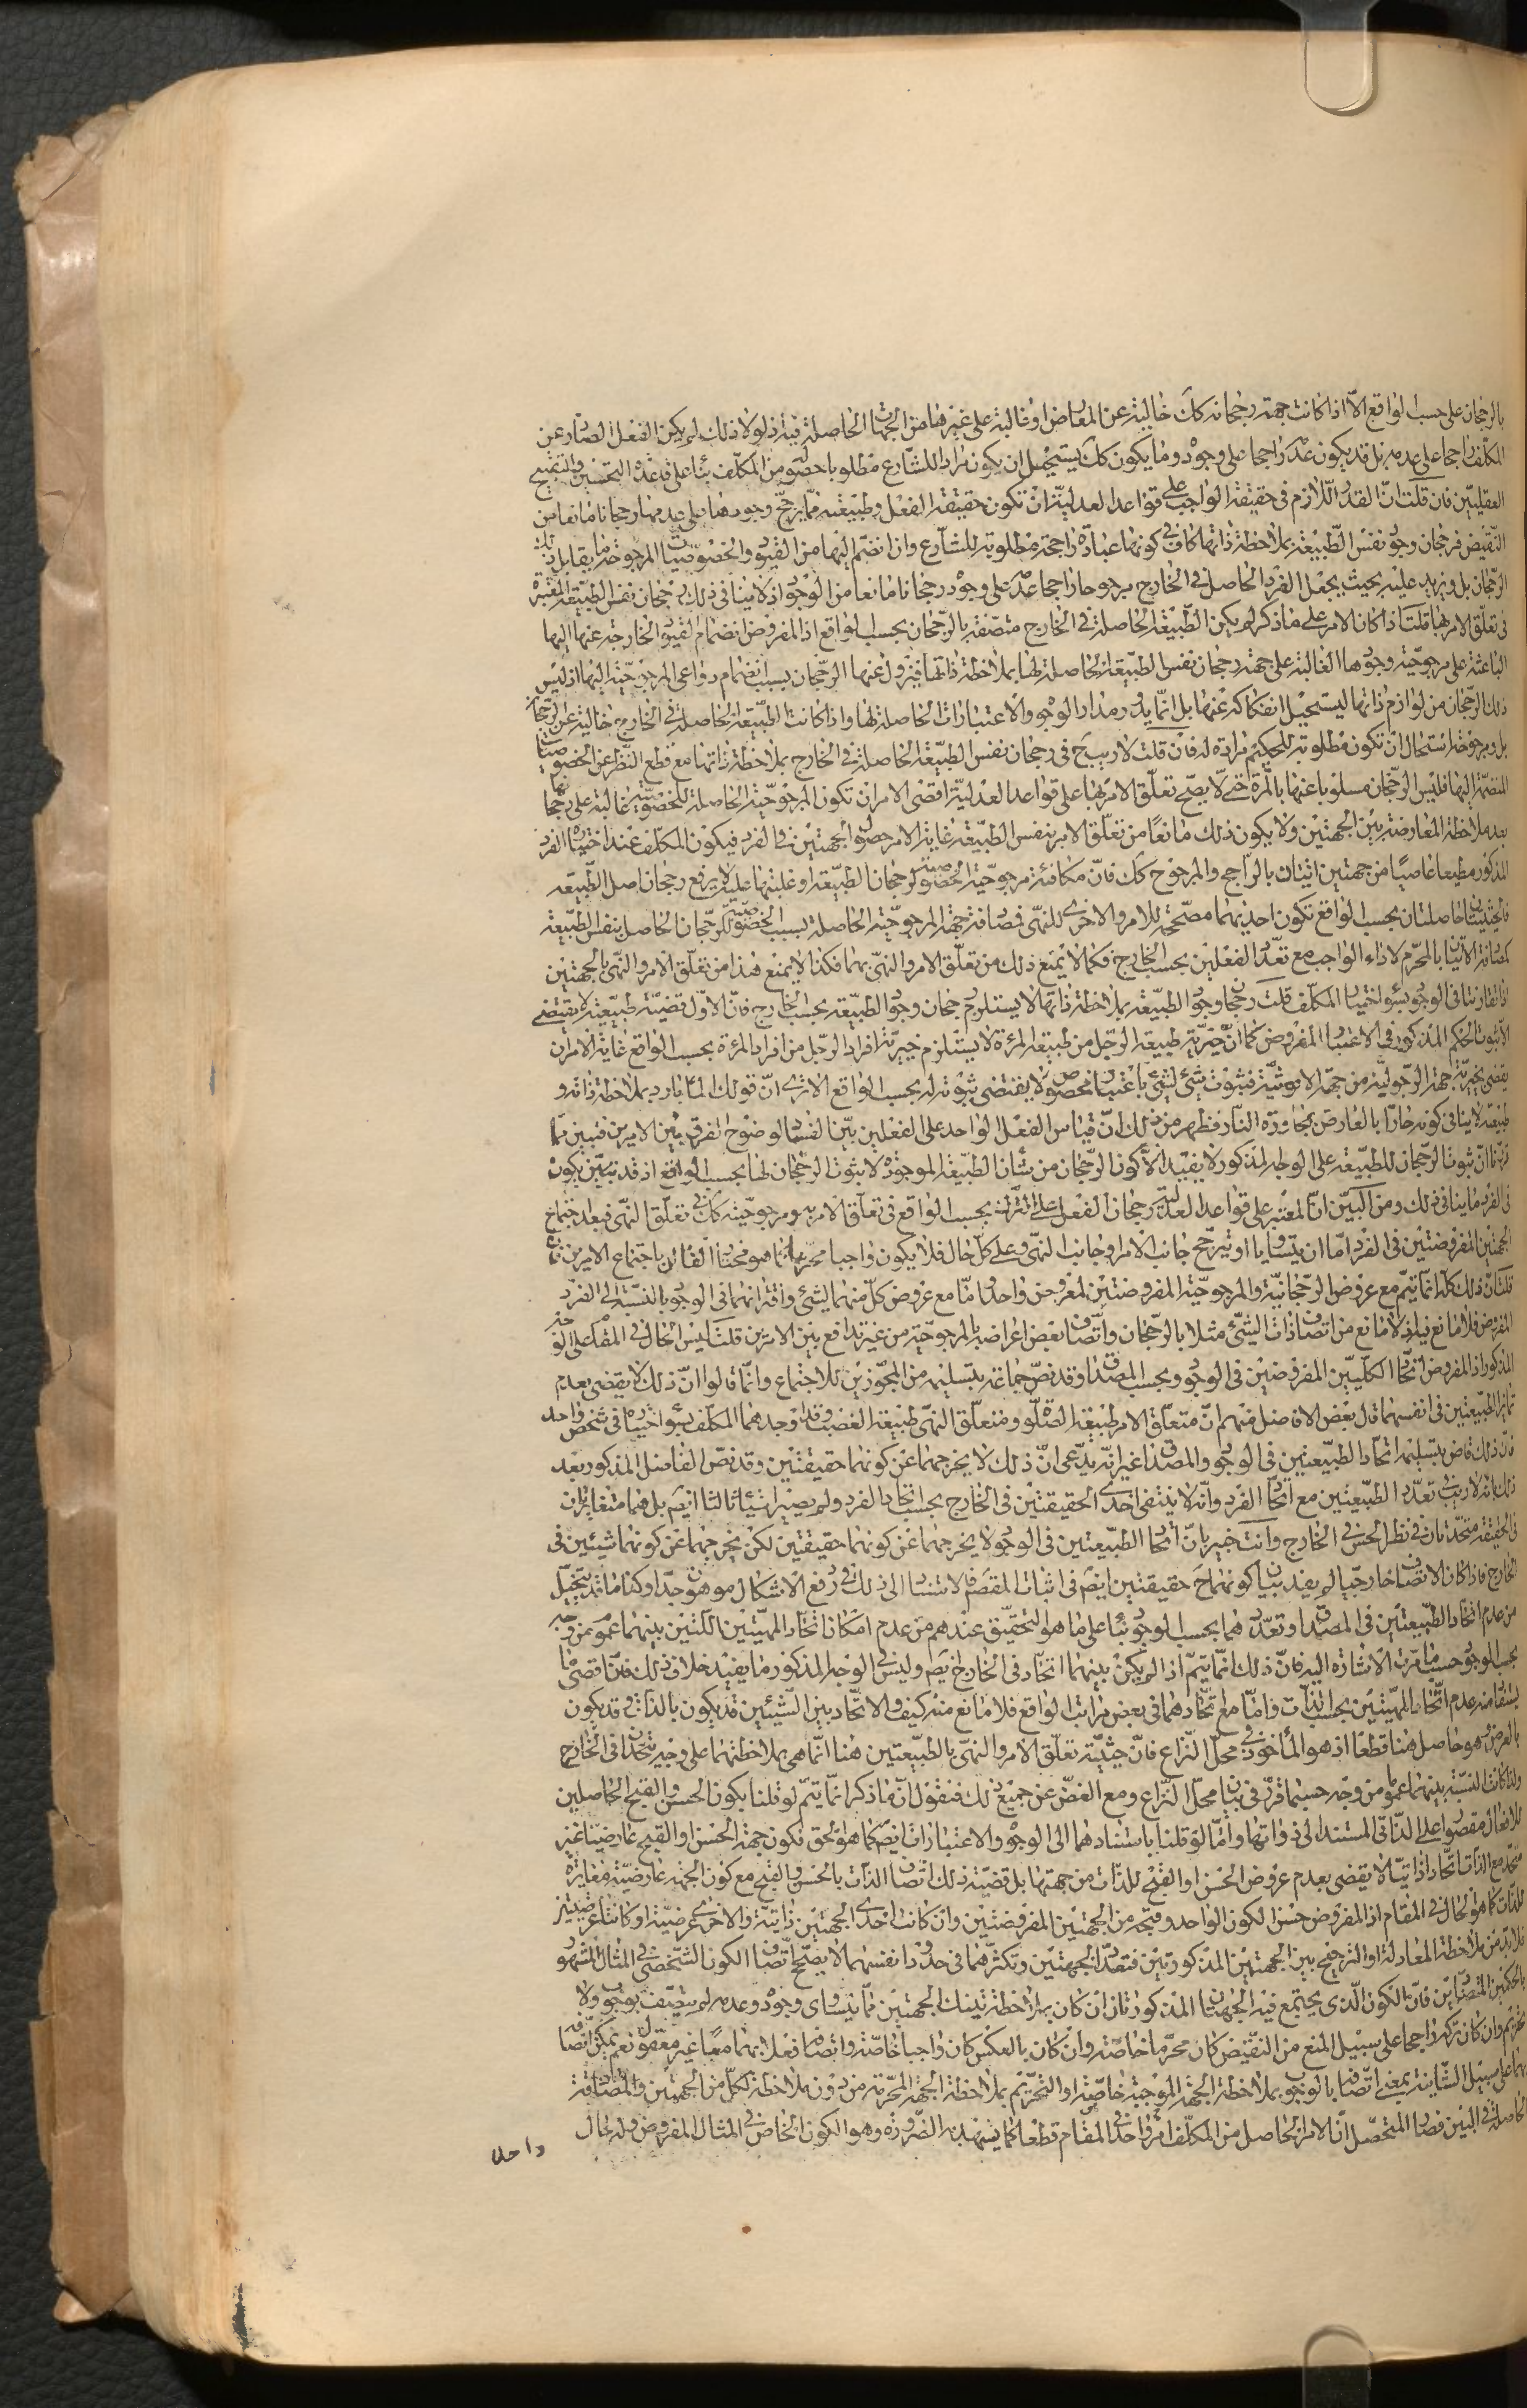 بالرجحان على حسب الواقع الا اذا كانت جهة رجحانه كك خالية عن المعارض او غالبة على غيرها من الجهات الحاصلة فيه اذ لولا ذلك لم يكن الفعل الصادر عن
المكلف راجحا على عدمه بل قد يكون عدمه راجحا على وجوده وما يكون كك يستحيل ان يكون مرادا للشارع مطلوبا حصوله من المكلف بناء على قاعدة التحسين والتقبيح
العقليين فان قلت ان القدر اللازم فى حقيقة الواجب على قواعد العدلية ان تكون حقيقة الفعل وطبيعته مما يرجح وجودها على عدمها رجحانا مانعا من
النقيض فرجحان وجود نفس الطبيعة بملاحظة ذاتها كاف فى كونها عبادة راجحة مطلوبة للشارع وان انضم اليها من القيود والخصوصيات المرجوحة ما يقابل ذلك
الرجحان بل ويزيد عليه بحيث يجعل الفرد الحاصل فى الخارج مرجوحا راجحا عدمه على وجوده رجحانا مانعا من الوجود اذ لا ينافى ذلك رجحان نفس الطبيعة المعتبرة
فى تعلق الامر بها قلت اذا كان الامر على ما ذكر لم يكن الطبيعة الحاصلة فى الخارج متصفة بالرجحان بحسب الواقع اذ المفروض انضمام القيود الخارجة عنها اليها
الباعثة على مرجوحية وجودها الغالبة على جهة رجحان نفس الطبيعة الحاصلة لها بملاحظة ذاتها فيزول عنها الرجحان بسبب انضمام دواعى المرجوحية اليها اذ ليس
ذلك الرجحان من لوازم ذاتها ليستحيل انفكاكه عنها بل انما يدور مدار الوجوه والاعتبارات الحاصلة لها واذا كانت الطبيعة الحاصلة فى الخارج خالية عن الرجحان
بل ومرجوحة استحال ان تكون مطلوبة للحكيم مرادة له فان قلت لا ريب ح فى رجحان نفس الطبيعة الحاصلة فى الخارج بملاحظة ذاتها مع قطع النظر عن الخصوصيات
المنضمة اليها فليس الرجحان مسلوبا عنها بالمرة حتى لا يصح تعلق الامر بها على قواعد العدلية اقصى الامر ان تكون المرجوحية الحاصلة للخصوصية غالبة على رجحانها
بعد ملاحظة المعارضة بين الجهتين ولا يكون ذلك مانعا من تعلق الامر بنفس الطبيعة غاية الامر حصول الجهتين فى الفرد فيكون المكلف عند اختياره الفرد
المذكور مطيعا عاصيا من جهتين اتيانه بالراجح والمرجوح كك فان مكافئة مرجوحية الخصوصية لرجحان الطبيعة او غلبتها عليه لا يرفع رجحان اصل الطبيعة
فالحيثيتان حاصلتان بحسب الواقع تكون احديهما مصححة للامر والاخرى للنهى فمصادفة جهة المرجوحية الحاصلة بسبب الخصوصية للرجحان الحاصل بنفس الطبيعة
كمقارنة الاتيان بالمحرم لاداء الواجب مع تعدد الفعلين بحسب الخارج فكما لا يمنع ذلك من تعلق الامر والنهى بهما فكذا لا يمنع هذا من تعلق الامر والنهى بالجهتين
اذا تقارنتا فى الوجود بسوء اختيار المكلف قلت رجحان وجود الطبيعة بملاحظة ذاتها لا يستلزم رجحان وجود الطبيعة بحسب الخارج فان الاول قضية طبيعية لا يقتضى
الا ثبوت الحكم المذكور فى الاعتبار المفروض كما ان خيرية طبيعة الرجل من طبيعة المرئة لا يستلزم خيرية افراد الرجل من افراد المرئة بحسب الواقع غاية الامر ان
يقضى بخيرية جهة الرجولية من جهة الانوثية فثبوت شئ لشئ باعتبار مخصوص لا يقتضى ثبوته له بحسب الواقع الا ترى ان قولك الماء بارد بملاحظة ذاته و
طبيعته لا ينافى كونه حارا بالعارض بمجاورة النار فظهر من ذلك ان قياس الفعل الواحد على الفعلين بين الفساد لوضوح الفرق بين الامرين فتبين بما
قررنا ان ثبوت الرجحان للطبيعة على الوجه المذكور لا يفيد الا كون الرجحان من شأن الطبيعة الموجودة لا ثبوت الرجحان لها بحسب الواقع اذ قد تبين يكون
فى الفرد ما ينافى ذلك ومن البين ان المعتبر على قواعد العدلية رجحان الفعل على الترك بحسب الواقع فى تعلق الامر به ومرجوحيته كك فى تعلق النهى فبعد اجتماع
الجهتين المفروضتين فى الفرد اما ان يتساويا او يترجح جانب الامر او جانب النهى وعلى كل حال فلا يكون واجبا محرما كما هو مختار القائل باجتماع الامرين فان
قلت ان ذلك كله انما يتم مع عروض الرجحانية والمرجوحية المفروضتين لمعروض واحد واما مع عروض كل منهما لشئ واقترانهما فى الوجود بالنسبة الى الفرد
المفروض فلا مانع فيه اذ لا مانع من اتصاف ذات الشئ مثلا بالرجحان واتصاف بعض اعراضه بالمرجوحية من غير تدافع بين الامرين قلت ليس الحال فى المقام على الوجه
المذكور اذ المفروض اتحاد الكليين المفروضين فى الوجود وبحسب المصداق وقد نص جماعة بتسليمه من المجوزين للاجتماع وانما قالوا ان ذلك لا يقضى بعدم
تمايز الطبيعتين فى انفسهما قال بعض الافاضل منهم ان متعلق الامر طبيعة الصلوة ومتعلق النهى طبيعة الغصب وقد اوجدهما المكلف بسوء اختياره فى شخص واحد
فان ذلك قاض بتسليمه اتحاد الطبيعتين فى الوجود والمصداق غير انه يدعى ان ذلك لا يخرجهما عن كونهما حقيقتين وقد نص الفاضل المذكور بعد
ذلك بانه لا ريب فى تعدد الطبيعتين مع اتحاد الفرد وانه لا ينتفى احدى الحقيقتين فى الخارج بسبب اتحاد الفرد ولم يصيرا شيئا ثالثا ايضم بل هما متغايران
فى الحقيقة متحدتان فى نظر الحس فى الخارج وانت خبير بان اتحاد الطبيعتين فى الوجود لا يخرجهما عن كونهما حقيقتين لكن يخرجهما عن كونهما شيئين فى
الخارج فاذا كان الاتصاف خارجيا لم يفد بيان كونهما ح حقيقتين ايضم فى اثبات المقصم فالاستناد الى ذلك فى رفع الاشكال موهون جدا وكذا ما قد يتخيل
من عدم اتحاد الطبيعتين فى المصداق وتعددهما بحسب الوجود بناء على ما هو التحقيق عندهم من عدم امكان اتحاد المهيتين اللتين بينهما عموم من وجه
بحسب الوجود حسبما مرت الاشارة اليه فان ذلك انما يتم اذا لم يكن بينهما اتحاد فى الخارج ايضم وليس فى الوجه المذكور ما يفيد خلاف ذلك فان اقصى ما
يستفاد منه عدم اتحاد المهيتين بحسب الذات واما مع اتحادهما فى بعض مراتب الواقع فلا مانع منه كيف والاتحاد بين الشيئين قد يكون بالذات وقد يكون
بالعرض وهو حاصل هنا قطعا اذ هو المأخوذ فى محل النزاع فان حيثية تعلق الامر والنهى بالطبيعتين هنا انما هى بملاحظتهما على وجه يتحدان فى الخارج
ولذا كانت النسبة بينهما عموما من وجه حسبما قرر فى بيان محل النزاع ومع الغض عن جميع ذلك فنقول ان ما ذكر انما يتم لو قلنا بكون الحسن والقبح الحاصلين
للافعال مقصورا على الذاتى المستند الى ذواتها واما لو قلنا باستنادهما الى الوجوه والاعتبارات ايضم كما هو الحق فكون جهة الحسن او القبح عارضيا غير
متحد مع الذات اتحادا ذاتيا لا يقضى بعدم عروض الحسن او القبح للذات من جهتها بل قضية ذلك اتصاف الذات بالحسن والقبح مع كون الجهة عارضية مغايرة
للذات كما هو الحال فى المقام اذ المفروض حسن الكون الواحد وقبحه من الجهتين المفروضتين وان كانت احدى الجهتين ذاتية والاخرى عرضية او كانتا عرضيتين
فلا بد من ملاحظة المعادلة او الترجيح بين الجهتين المذكورتين فتعدد الجهتين وتكثرهما فى حدود انفسهما لا يصحح اتصاف الكون الشخصى فى المثال المشهور
بالحكمين المتضادين فان الكون الذى يجتمع فيه الجهتان المذكورتان ان كان بملاحظة تينك الجهتين مما يتساوى وجوده وعدمه لم يتصف بوجوب ولا
تحريم وان كان تركه راجحا على سبيل المنع من النقيض كان محرما خاصة وان كان بالعكس كان واجبا خاصة واتصافه فعلا بهما معا غير معقول نعم يمكن اتصافه
بهما على سبيل الشأنية بمعنى اتصافه بالوجوب بملاحظة الجهة الموجبة خاصة او التحريم بملاحظة الجهة المحرمة من دون ملاحظة لكل من الجهتين والمصادفة
الحاصلة فى البين فصار المتحصل ان الامر الحاصل من المكلف امر واحد فى المقام قطعا كما يشهد به الضرورة وهو الكون الخاص فى المثال المفروض وله حال
واحد